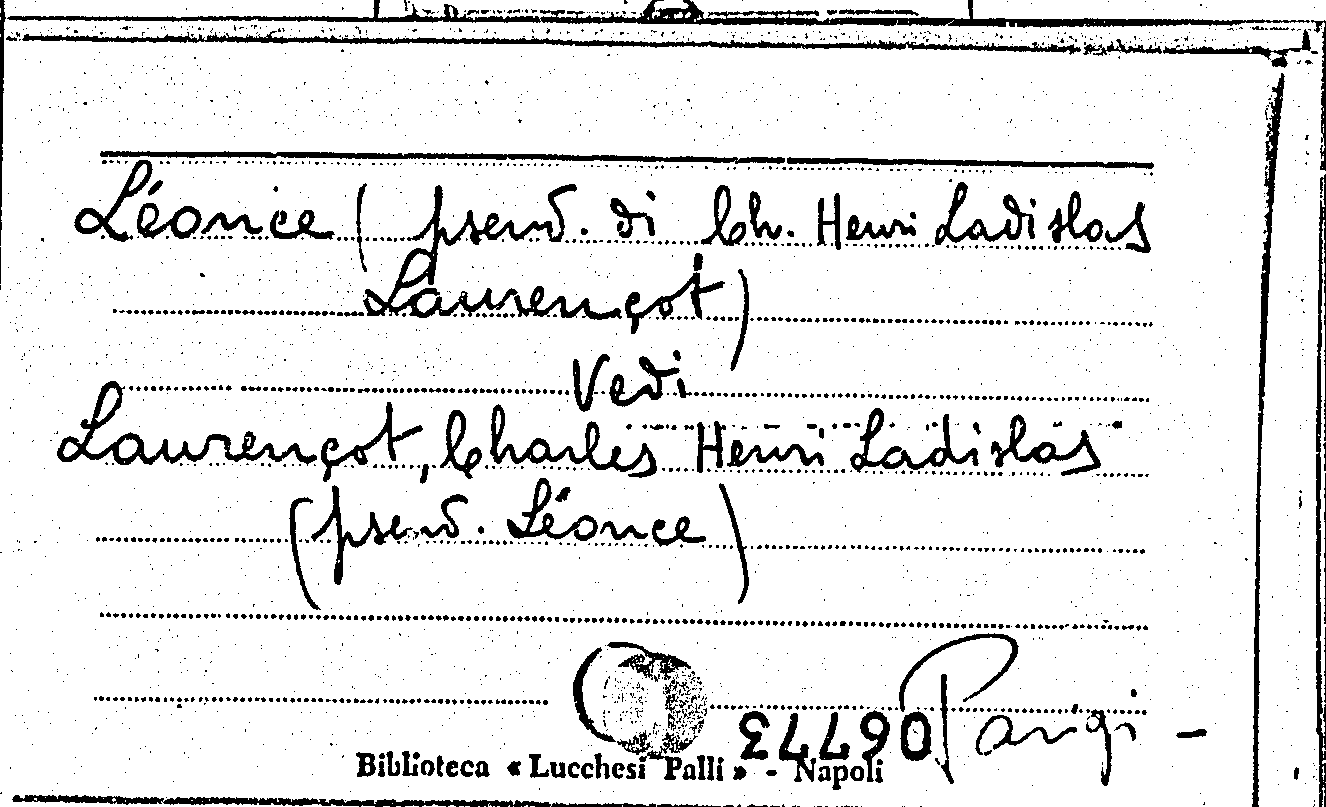 Léonce (pseud. di Ch. Henri Ladislas
Laurençot)
Vedi
Laurençot, Charles Henri Ladislas
(pseud. Léonce)
Parigi -
Biblioteca « Lucchesi Palli » - Napoli